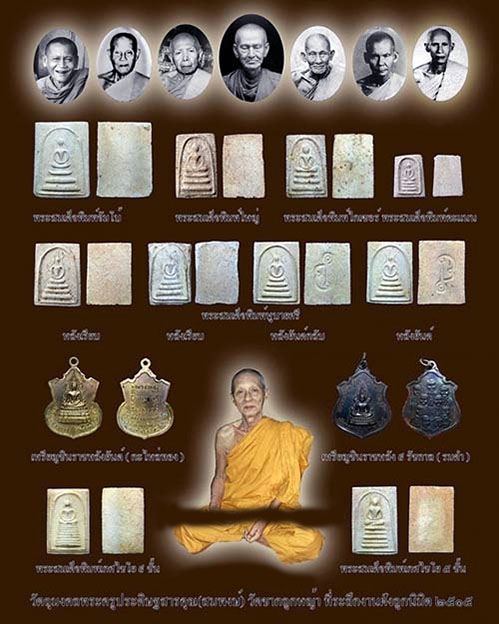 พระสมเด็จพิมพ์จัมโบ้ พระสมเด็จพิมพ์ใหญ่ พระสมเด็จพิมพ์ไกเซอร์ พระสมเด็จพิมพ์คะแนน
พระสมเด็จพิมพ์ชูบายศรี
หลังเรียบ หลังเรียบ หลังยันต์กลับ หลังยันต์
เหรียญชินราชหลังยันต์ ( กะไหล่ทอง ) เหรียญชินราชหลัง ๙ รัชกาล ( รมดำ )
พระสมเด็จพิมพ์เกศไชโย ๙ ชั้น พระสมเด็จพิมพ์เกศไชโย ๕ ชั้น
วัตถุมงคลพระครูประดิษฐสารคุณ(สมพงษ์) วัดชากลูกหญ้า ที่ระลึกงานฝังลูกนิมิต ๒๕๑๕